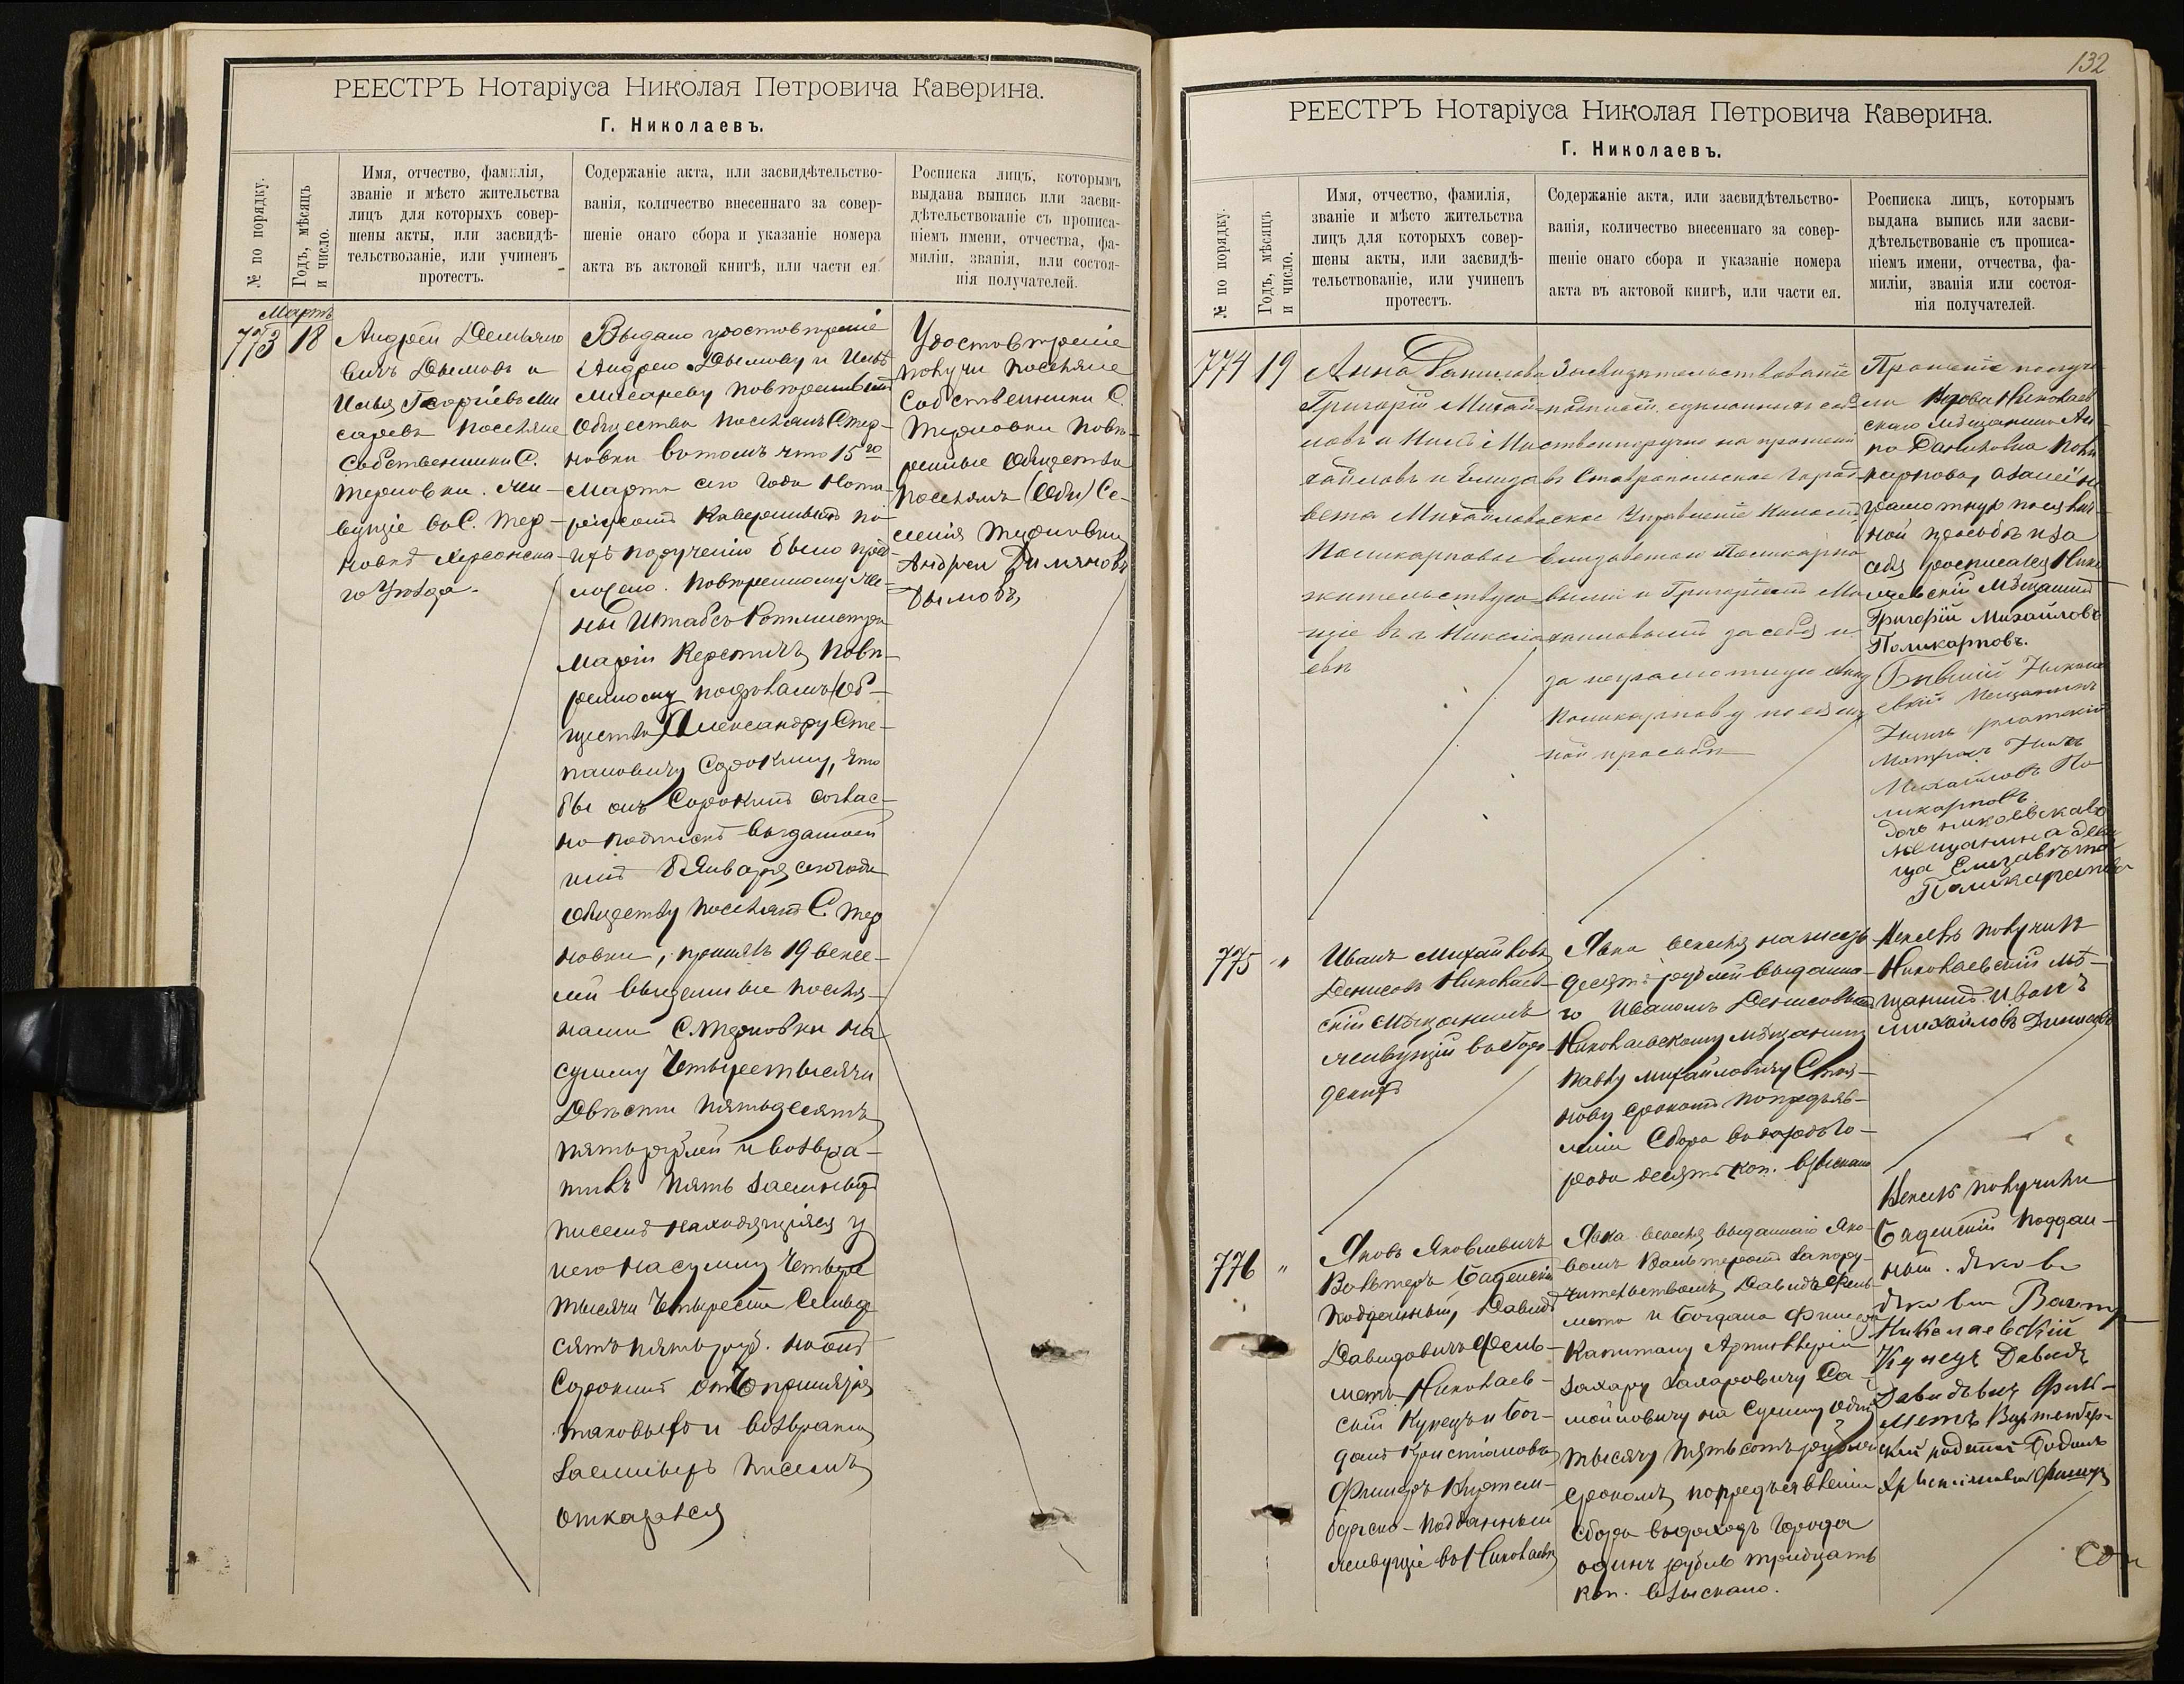 РЕЕСТРЪ Нотаріуса Николая Петровича Каверина.
Г. Николаевъ.
№ по порядку.
Годъ, мѣсяцъ
и число.
Имя, отчество, фамилія,
званіе и мѣсто жительства
лицъ для которыхъ совер-
шены акты, или засвидѣ-
тельствованіе, или учиненъ
протестъ.
Содержаніе акта, или засвидѣтельство-
ванія, количество внесеннаго за совер-
шеніе онаго сбора и указаніе номера
акта въ актовой книгѣ, или части ея.
Росписка лицъ, которымъ
выдана выпись или засви-
дѣтельствованіе съ прописа-
ніемъ имени, отчества, фа-
миліи, званія, или состоя-
нія получателей.
Мартъ
773
18
Андрей Демьяно
вичъ Дымовъ и
Илья Георгіевъ Ми
саревъ поселяне
Собственники С.
Терновки. Жи-
вущіе въ С. Тер-
новкѣ Херсонска-
го Уѣзда.
Выдано удостовѣреніе
Андрею Дымову и Ильѣ
Мисареву повѣреннымъ
Общества поселянъ С. Тер-
новки въ томъ что 15го
Марта сего года Нота-
ріусомъ Каверинымъ по
ихъ порученію было пред-
ложено повѣренному Же-
ны Штабсъ Ротмистра
Маріи Керстичъ повѣ-
ренному
щества) Александру Сте-
пановичу Сорокину, что
бы онъ Сорокинъ соглас-
но подписки выданной
имъ 8 Января сего года
Обществу поселянъ С. Тер
новки, принялъ 19 вексе-
лей выданные поселя-
нами С. Терновки на
сумму Четыре тысячи
Двѣсти пятьдесятъ
пять рублей и возвра-
тилъ пять заемныхъ
писемъ находящіяся у
него на сумму Четыре
тысячи Четыреста Семьде
сятъ пять руб. но онъ
Сорокинъ отъ принятія
таковыхъ и возврата
Заемныхъ писемъ
отказался
Удостовѣреніе
получи поселяне
Собственники С.
Терновки повѣ-
ренные Общества
поселянъ (Обы) Се-
ленія Терновки
Андреи Димяновъ
Дымовъ
132
РЕЕСТРЪ Нотаріуса Николая Петровича Каверина.
Г. Николаевъ.
№ по порядку.
Годъ, мѣсяцъ
и число.
Имя, отчество, фамилія,
званіе и мѣсто жительства
лицъ для которыхъ совер-
шены акты, или засвидѣ-
тельствованіе, или учиненъ
протестъ.
Содержаніе акта, или засвидѣтельство-
ванія, количество внесеннаго за совер-
шеніе онаго сбора и указаніе номера
акта въ актовой книгѣ, или части ея.
Росписка лицъ, которымъ
выдана выпись или засви-
дѣтельствованіе съ прописа-
ніемъ имени, отчества, фа-
миліи, званія или состоя-
нія получателей.
774
19
Анна Данилова
Григорій Михай-
ловъ и Нилъ Ми
хайловъ и Елиза
вета Михайлова
Поликарповы
жительствую-
щіе въ г. Никола
евѣ
Засвидѣтельствованіе
подписи, сдѣланныхъ соб-
ственноручно на прошеніи
въ Ставропольское Город-
ское Управленіе Ниломъ,
Елизаветою Поликарпо
выми и Григоріемъ Ми
хайловымъ за себя и
за неграмотную Анну
Поликарпову по ея лич
ной просьбѣ
Прошеніе получи-
ли Вдова Николаев
скаго Мѣщанина Ан-
на Даниловна Поли
карпова, а за нею не
грамотную по ея лич-
ной просьбѣ и за
себя росписался Нико
лаевскій Мѣщанинъ
Григорій Михайловъ
Поликарповъ.
Бывшій Никола
евскій Мещанинъ
матросъ Нилъ
Михайловъ По
ликарповъ
дочь николевскаво
мещанина деви
ца Елизавѣта
Поликарпова
775
"
Иванъ Михайловъ
Денисовъ Николаев-
скій Мѣщанинъ
живущій въ Горо-
Явка векселя на
десять рублей выданна-
го Иваномъ Денисовымъ
Николаевскому Мѣщанину
Павлу Михайловичу
срокомъ по предъяв-
леніи Сбора въ доходъ го-
рода десять коп. взыскано
Вексель получилъ
Николаевскій Мѣ-
щанинъ Иванъ
Михайловъ Динисовъ
776
"
Яковъ Яковлевичъ
Вольтеръ Баденскій
подданный, Давидъ
Давидовичъ Фель-
метъ Николаев-
скій Купецъ и Бог-
данъ Христіановъ
Фишеръ Виртем-
бергско-подданный
живущіе въ Николаевѣ
Явка векселя выданнаго Яко-
вомъ Вальтеромъ за пору-
чительствомъ Давида Фель-
мета и Богдана Фишера
Капитану Артиллеріи
Захару Захаровичу Са-
мойловичу на Сумму одну
тысячу пятьсотъ рублей
срокомъ по предъявленіи
сбора въ доходъ города
одинъ рубль тридцать
коп. взыскано.
Вексель получили
Баденскій поддан-
ный. Яковъ
Николаевскій
Купецъ Давидъ
Давидовичъ Филь-
метъ Виртембер-